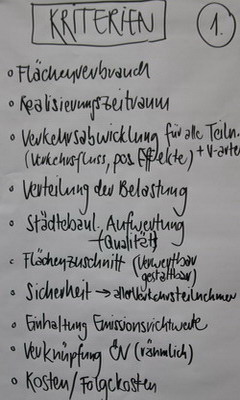 KRITERIEN 1.
• Flächenverbrauch
• Realisierungszeitraum
• Verkehrsabwicklung für alle Teiln.
(Verkehrsfluss, pos. Effekte) + V-arten
• Verteilung der Belastung
• Städtebaul. Aufwertung
(Qualität)
• Flächenzuschnitt (Verwertbar
gestaltbar)
• Sicherheit → aller Verkehrsteilnehmer
• Einhaltung Emissionsrichtwerte
• Verknüpfung ÖV (räumlich)
• Kosten/Folgekosten